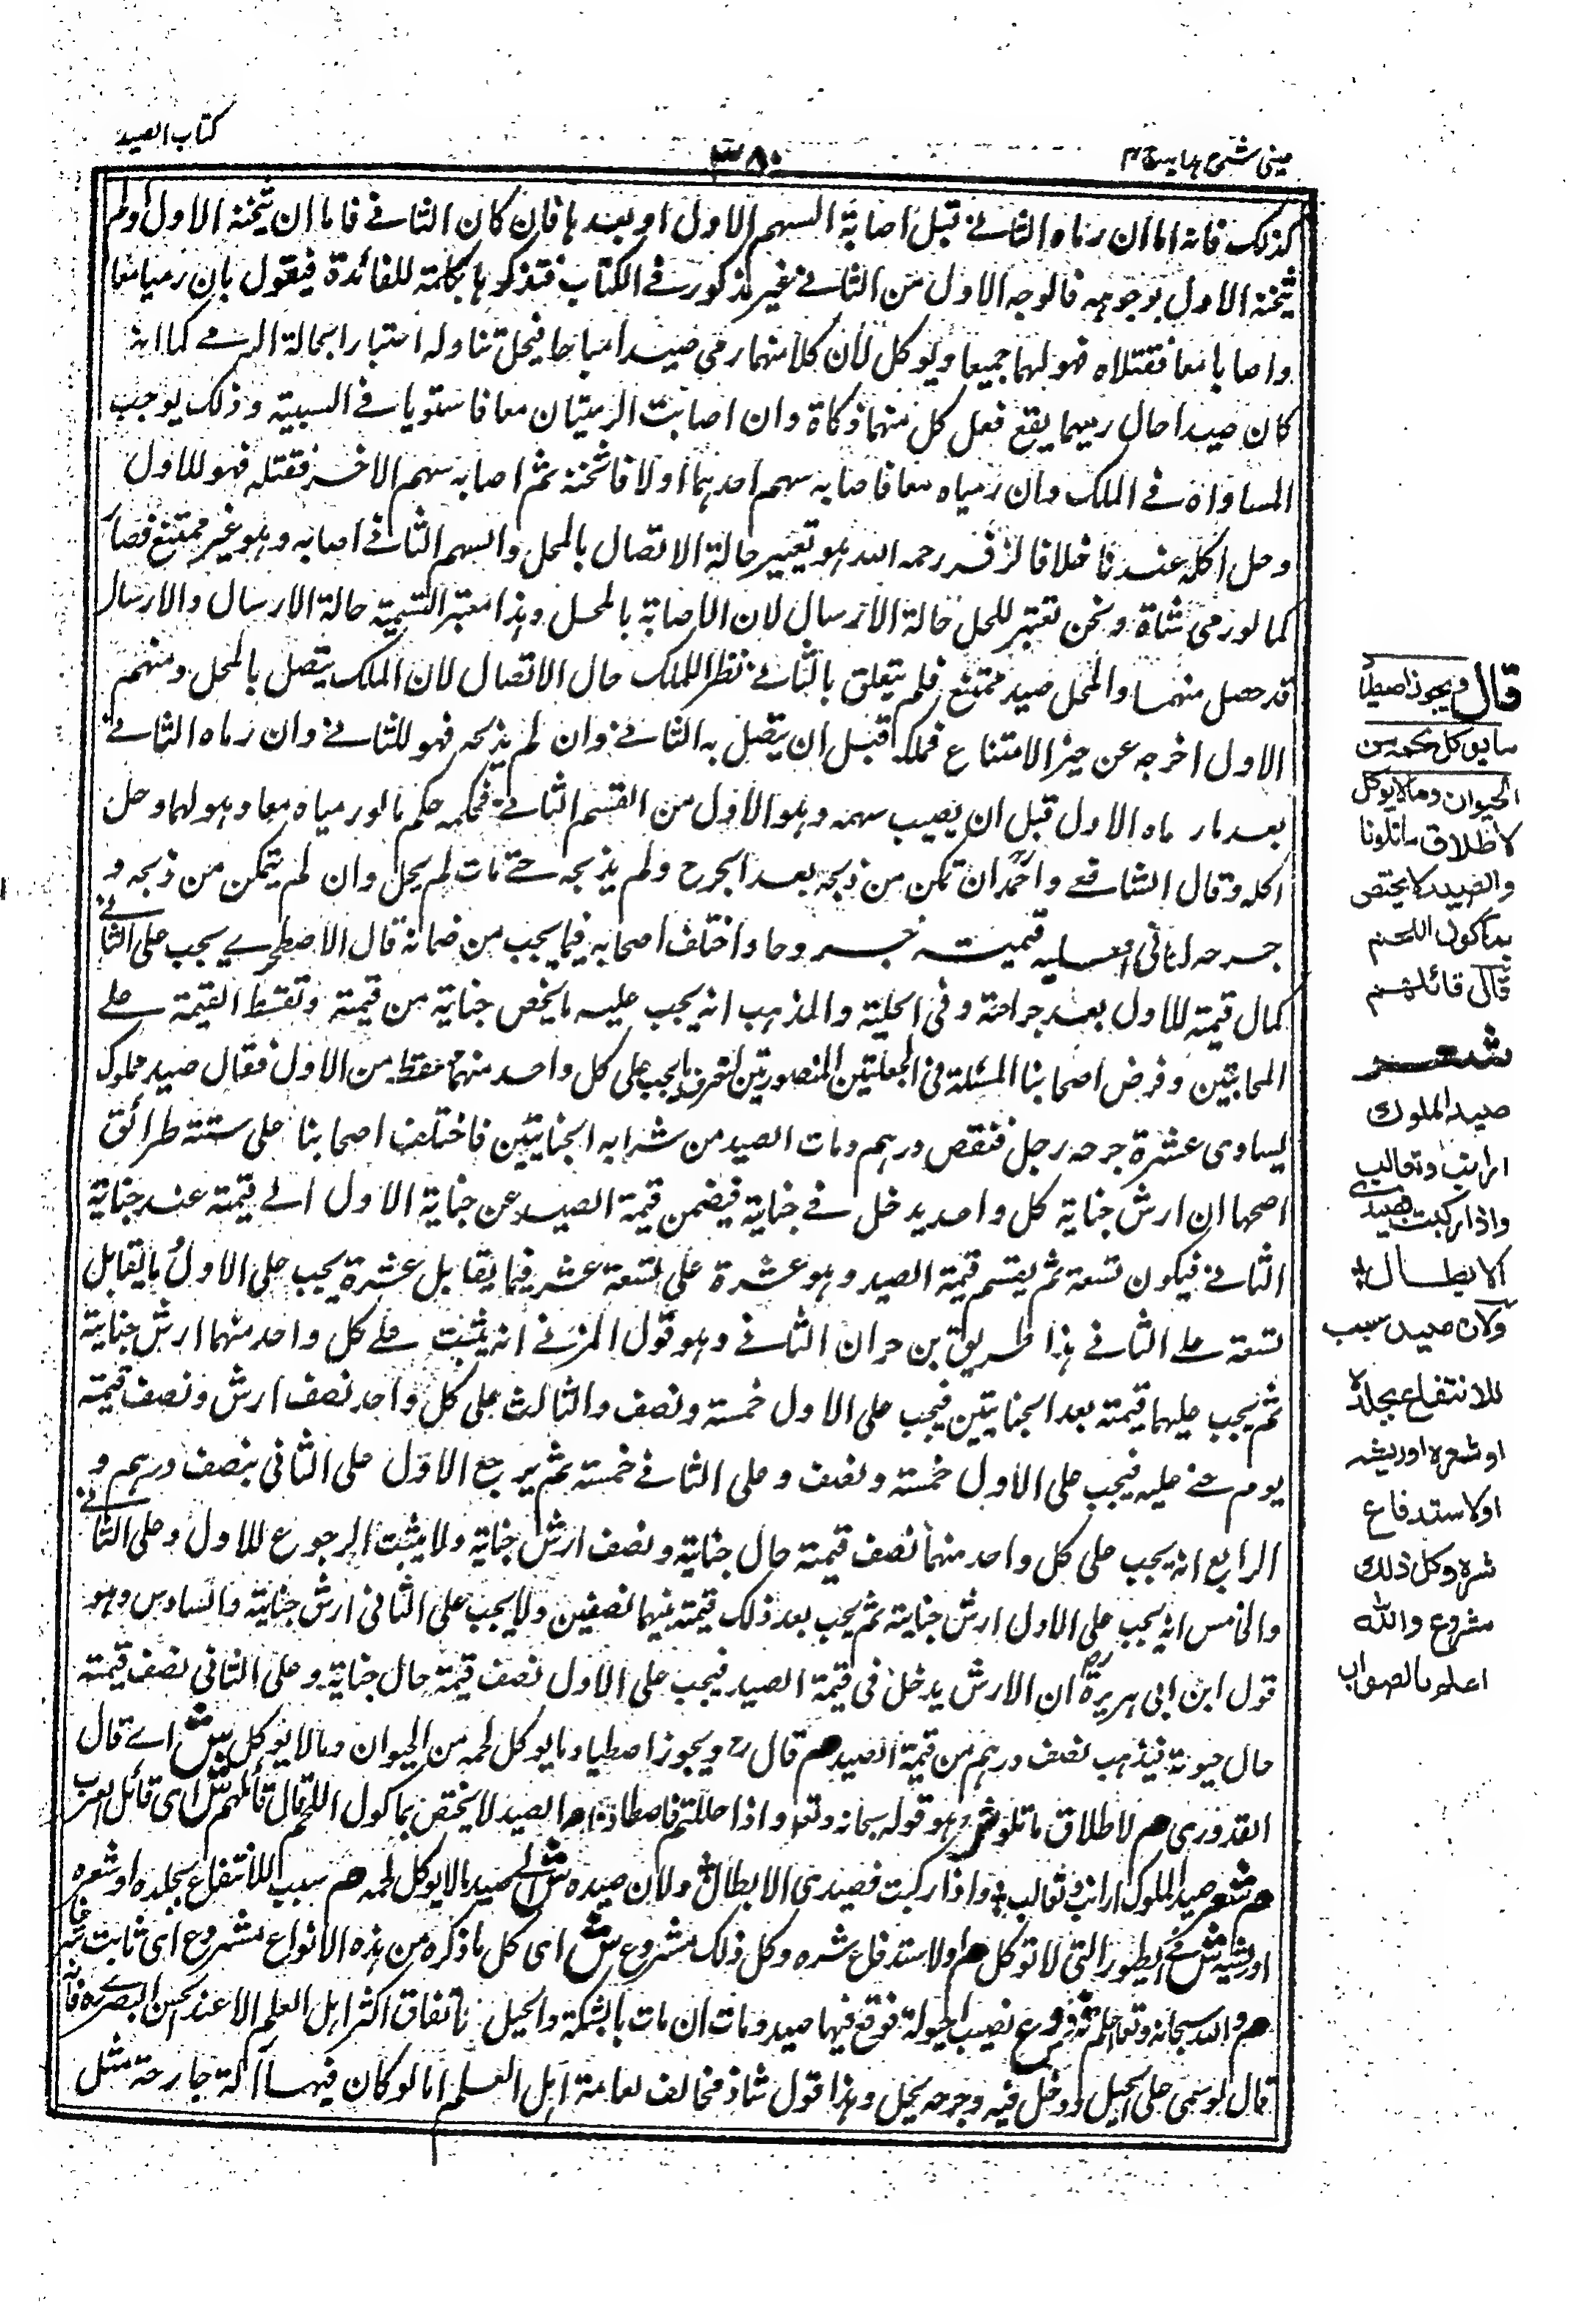 كتاب الصيد
٣٨٠
عينی شرح ہدایہ ج ۴
كذلك فانه اما ان رماه الثانے قبل اصابة السهم الاول او بعدها فان كان الثانے فاما ان يثخنه الاول او لم
يثخنه الاول بوجوهه فالوجه الاول من الثانے غير مذكور فے الكتاب فتذكرها تكلمة للفائدة فيقول بان رميا معا
واصابا معا فقتلاه فهو لهما جميعا ويوكل لان كلا منهما رمى صيدا مباحا فيحل تناوله اعتبارا بحالة الرمے كما انه
كان صيدا حال رميهما يقع فعل كل منهما ذكاة وان اصابت الرميتان معا فاستويا فے السببية وذلك يوجب
المساواة فے الملك وان رمياه معا فاصابه سهم احدهما اولا فاثخنه ثم اصابه سهم الاخر فقتله فهو للاول
وحل اكله عندنا خلافا لزفر رحمه الله هو تعبير حالة الاتصال بالمحل والسهم الثانے اصابه وهو غير ممتنع فصار
كما لو رمى شاة ونحن نعتبر للحل حالة الارسال لان الاصابة بالمحل وهذا معتبر التسمية حالة الارسال والارسال
قد حصل منهما والمحل صيد ممتنع فلم يتعلق بالثانے نظرا للملك حال الاتصال لان الملك يتصل بالمحل ومنهم
الاول اخرجه عن حيز الامتناع فملكه قبل ان يتصل به الثانے وان لم يذبحه فهو للثانے وان رماه الثانے
بعد ما رماه الاول قبل ان يصيب سهمه وهو الاول من القسم الثانے فحكمه حكم ما لو رمياه معا وهو لهما وحل
اكله وقال الشافعے واحمد ان تمكن من ذبحه بعد الجرح ولم يذبحه حتے مات لم يحل وان لم يتمكن من ذبحه و
جرحه الثانى عليه قيمته جروحا واختلف اصحابه فيما يجب من ضمانه قال الاصطخرے يجب على الثانے
كمال قيمته للاول بعد جراحته وفى الحلية والمذهب انه يجب عليه ما يخص جنايته من قيمته وتقسط القيمة علے
الجنايتين وفرض اصحابنا المسئلة فى الجعلتين المنصورتين لتعرف ما يجب على كل واحد منهما فقط من الاول فقال صيد مملوك
يساوى عشرة جرحه رجل فنقص درهم ومات الصيد من سراية الجنايتين فاختلف اصحابنا على ستة طرائق
اصحها ان ارش جناية كل واحد يدخل فے جنايته فيضمن قيمة الصيد عن جناية الاول الے قيمته عند جناية
الثانے فيكون تسعة ثم يقسم قيمة الصيد وهو عشرة على تسعة عشر فما يقابل عشرة يجب على الاول ما يقابل
تسعة علے الثانے هذا طريق بن حران الثانے وهو قول المزنے انه يثبت علے كل واحد منهما ارش جنايته
ثم يجب عليهما قيمته بعد الجنايتين فيجب على الاول خمسة ونصف والثالث على كل واحد نصف ارش ونصف قيمته
يوم جنے عليه فيجب على الاول خمسة ونصف وعلى الثانے خمسة ثم يرجع الاول على الثانى بنصف درهم و
الرابع انه يجب على كل واحد منهما نصف قيمته حال جنايته ونصف ارش جنايته ولا يثبت الرجوع للاول وعلى الثانے
والخامس انه يجب على الاول ارش جنايته ثم يجب بعد ذلك قيمته بينهما نصفين ولا يجب على الثانى ارش جنايته والسادس وهو
قول ابن ابى هريرة ان الارش يدخل فى قيمة الصيد فيجب على الاول نصف قيمته حال جنايته وعلى الثانى نصف قيمته
حال حيوته فيذهب نصف درهم من قيمة الصيد هم قال ويجوز اصطياد ما يوكل لحمه من الحيوان وما لا يوكل ش اے قال
القدورى هم لاطلاق ما تلونا ش وهو قوله سبحانه وتعالى واذا حللتم فاصطادوا هم الصيد لا يختص بماكول اللحم قال قائلهم ش اى قائل العرب
هم شعر صيد الملوك ارانب وثعالب ٭ واذا ركبت فصيدى الابطال ٭ ولان صيده ش اے صيد ما لا يوكل لحمه هم سبب للانتفاع بجلده او شعره
او ريشه ش فے الطيور التى لا توكل هم او لاستدفاع شره وكل ذلك مشروع ش اى كل ما ذكره من هذه الانواع مشروع اى ثابت شرعا
هم والله سبحانه وتعالى اعلم ش فروع نصب احبولة فوقع فيها صيد ومات ان مات بالشبكة والحبل باتفاق اكثر اهل العلم الا عند الحسن البصرے فانه
قال لو سمى على الحبل ودخل فيه وجرحه يحل وهذا قول شاذ مخالف لعامة اهل العلم اما لو كان فيها آلة جارحة مثل
قال ويجوز اصطياد
ما يوكل لحمه من
الحيوان وما لا يوكل
لاطلاق ما تلونا
والصيد لا يختص
بماكول اللحم
قال قائلهم
شعر
صيد الملوك
ارانب وثعالب
واذا ركبت فصيدى
الابطال ٭
ولان صيده سبب
للانتفاع بجلده
او شعره او ريشه
او لاستدفاع
شره وكل ذلك
مشروع والله
اعلم بالصواب